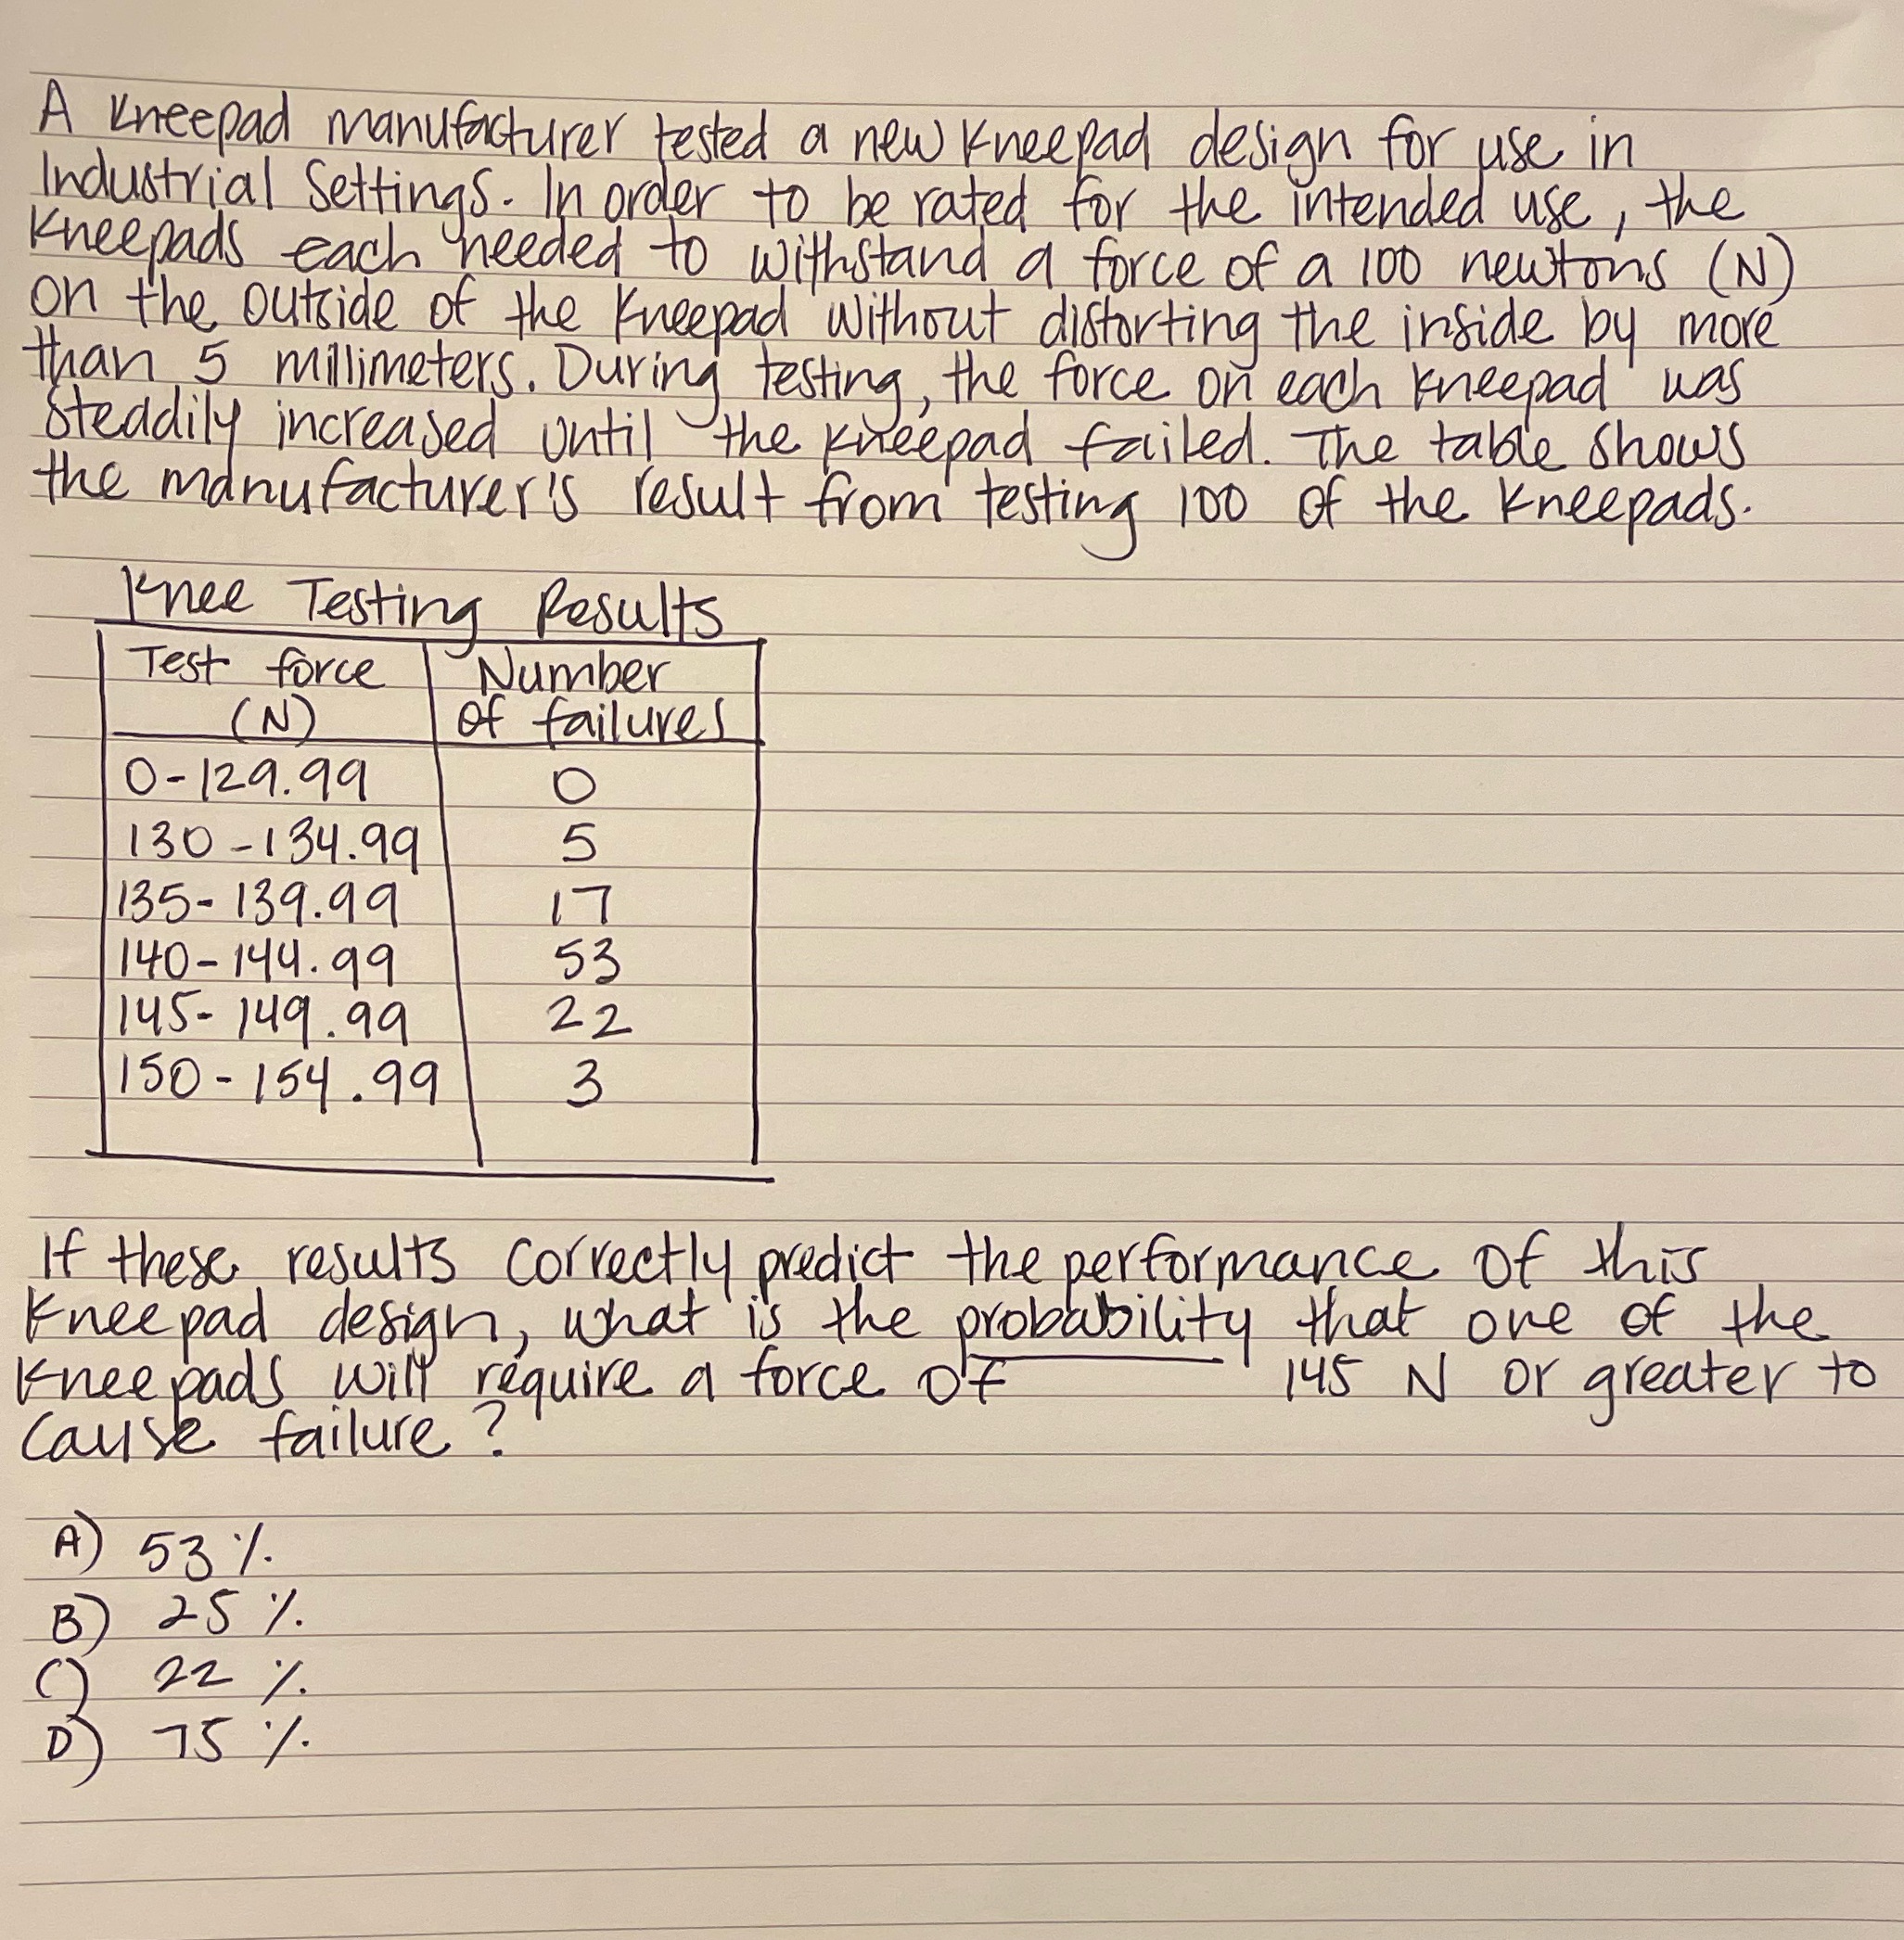 A kneepad manufacturer tested a new kneepad design for use in
Industrial Settings. In order to be rated for the intended use, the
kneepads each needed to withstand a force of a 100 newtons (N)
on the outside of the kneepad without distorting the inside by more
than 5 millimeters. During testing, the force on each kneepad was
steadily increased until the kneepad failed. The table shows
the manufacturer's result from testing 100 of the kneepads.
Knee Testing Results
Test force Number
(N) of failures
0-129.99 0
130-134.99 5
135-139.99 17
140-144.99 53
145-149.99 22
150-154.99 3
If these results correctly predict the performance of this
kneepad design, what is the probability that one of the
kneepads will require a force of 145 N or greater to
cause failure?
A) 53 %
B) 25 %
C) 22 %
D) 75 %